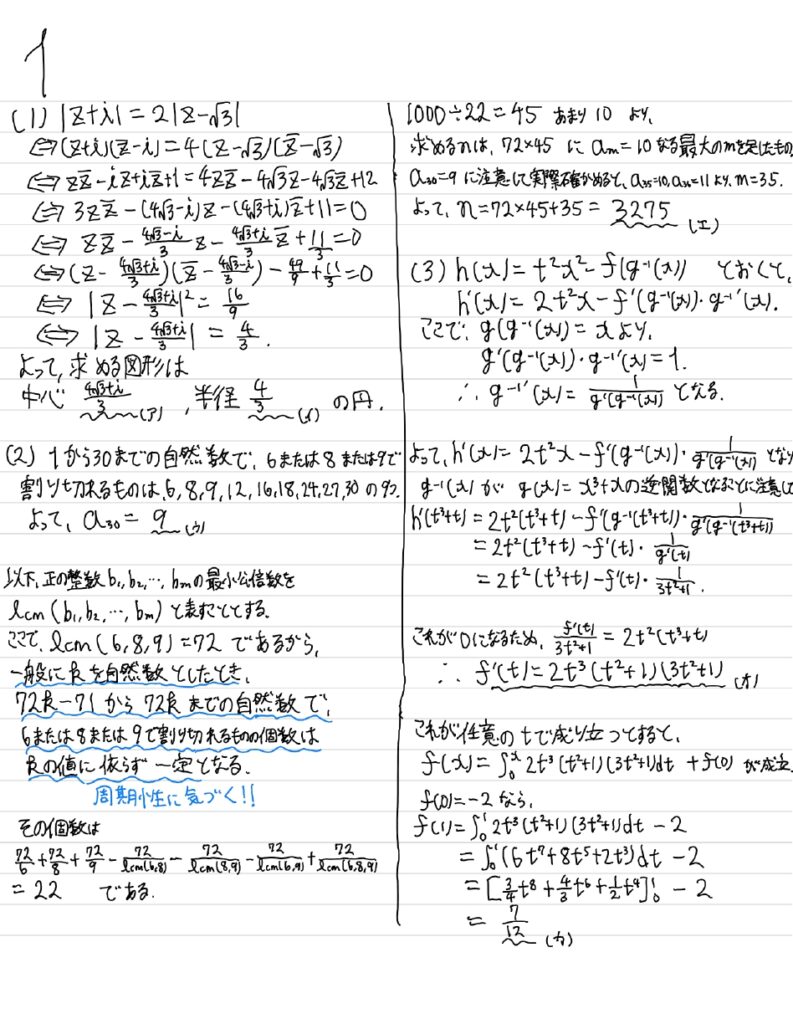 1
(1) |z+i| = 2|z-√3|
⇔(z+i)(z̄-i)=4(z-√3)(z̄-√3)
⇔zz̄-iz+iz̄+1=4zz̄-4√3z-4√3z̄+12
⇔3zz̄-(4√3-i)z-(4√3+i)z̄+11=0
⇔zz̄-(4√3-i)/3 z-(4√3+i)/3 z̄+11/3=0
⇔(z-(4√3+i)/3)(z̄-(4√3-i)/3)-49/9+11/3=0
⇔|z-(4√3+i)/3|²=16/9
⇔|z-(4√3+i)/3|=4/3.
よって,求める図形は
中心 (4√3+i)/3 (ア) , 半径 4/3 (イ) の円.
(2) 1から30までの自然数で,6または8または9で
割り切れるものは,6,8,9,12,16,18,24,27,30の9つ.
よって, a₃₀=9 (ウ)
以下,正の整数b₁,b₂,…,bₘの最小公倍数を
lcm(b₁,b₂,…,bₘ)と表すこととする.
ここで,lcm(6,8,9)=72であるから,
一般にkを自然数としたとき,
72k-71から72kまでの自然数で,
6または8または9で割り切れるものの個数は
kの値に依らず一定となる.
周期性に気づく!!
その個数は
72/6+72/8+72/9-72/lcm(6,8)-72/lcm(8,9)-72/lcm(6,9)+72/lcm(6,8,9)
=22 である.
1000÷22=45 あまり10 より,
求めるnは,72×45にaₘ=10なる最大のmを足したもの
a₃₀=9に注意して実際確かめると,a₃₅=10,a₃₆=11より,m=35.
よって,n=72×45+35=3275 (エ)
(3) h(x)=t²x²-f(g⁻¹(x)) とおくと,
h'(x)=2t²x-f'(g⁻¹(x))・g⁻¹'(x).
ここで,g(g⁻¹(x))=xより,
g'(g⁻¹(x))・g⁻¹'(x)=1.
∴g⁻¹'(x)=1/g'(g⁻¹(x)) となる.
よって,h'(x)=2t²x-f'(g⁻¹(x))・1/g'(g⁻¹(x)) となり
g⁻¹(x)がg(x)=x³+xの逆関数となることに注意して
h'(t³+t)=2t²(t³+t)-f'(g⁻¹(t³+t))・1/g'(g⁻¹(t³+t))
=2t²(t³+t)-f'(t)・1/g'(t)
=2t²(t³+t)-f'(t)・1/(3t²+1).
これが0になるため,f'(t)/(3t²+1)=2t²(t³+t)
∴f'(t)=2t³(t²+1)(3t²+1) (オ)
これが任意のtで成り立つとすると,
f(x)=∫₀ˣ2t³(t²+1)(3t²+1)dt+f(0)が成立
f(0)=-2なら,
f(1)=∫₀¹2t³(t²+1)(3t²+1)dt-2
=∫₀¹(6t⁷+8t⁵+2t³)dt-2
=[3/4t⁸+4/3t⁶+1/2t⁴]₀¹-2
=7/12 (カ)